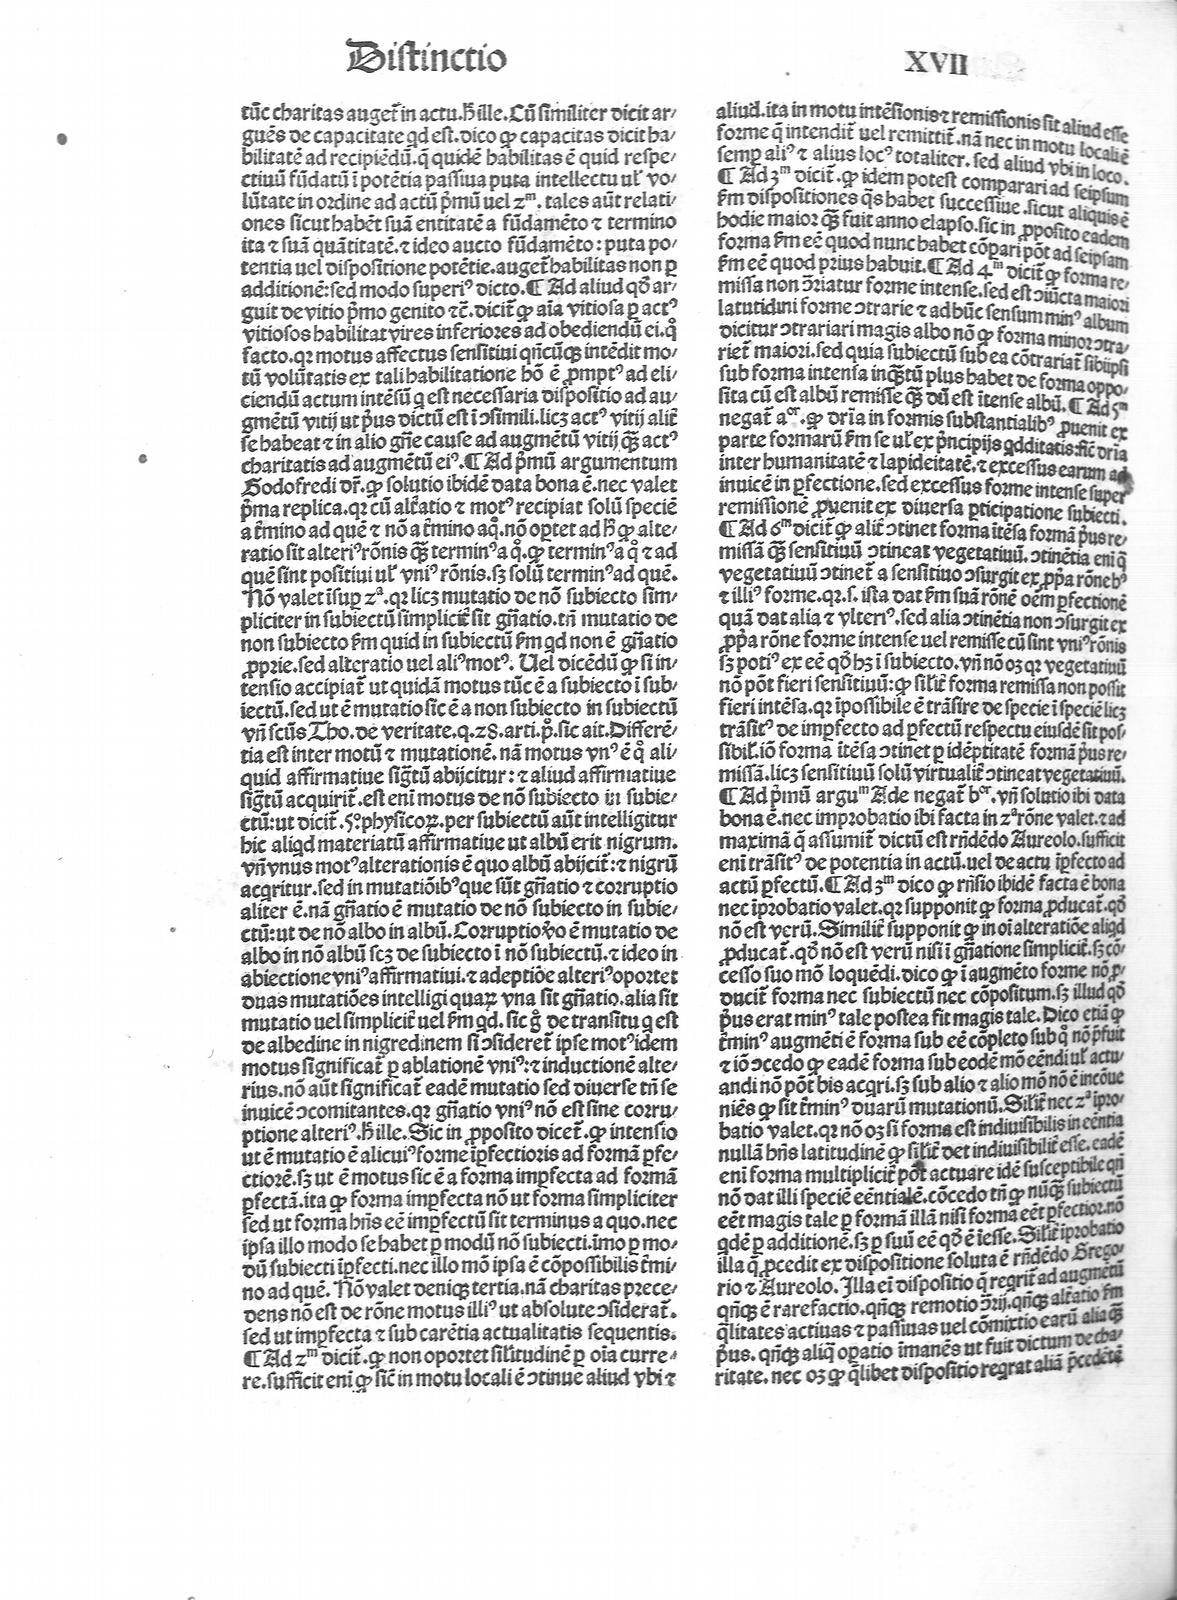 Distinctio
XVII
tūc charitas auget̄ in actu. H̄ ille. Cū similiter dicit ar⸗
guēs de capacitate qd est. dico ꝙ capacitas dicit ha⸗
bilitatē ad recipiēdū. q̄ quidē habilitas ē quid respe⸗
ctiuū fūdatū ī potētia passiua puta intellectu ul̄ vo⸗
lūtate in ordine ad actū p̄mū uel 2ᵐ. tales aūt relati⸗
ones sicut habēt suā entitatē a fūdamēto ⁊ termino
ita ⁊ suā quātitatē. ⁊ ideo aucto fūdamēto: puta po⸗
tentia uel dispositione potētie. auget̄ habilitas non ꝑ
additionē: sed modo superiꝰ dicto. ¶ Ad aliud qd̄ ar⸗
guit de vitio p̄mo genito ⁊c̄. dicit̄ ꝙ aīa vitiosa ꝑ actꝰ
vitiosos habilitat vires inferiores ad obediendū ei. q̊
facto. qꝛ motus affectus sensitiui qn̄cūqꝫ intēdit mo⸗
tū volūtatis ex tali habilitatione hō ē ꝓmptꝰ ad eli⸗
ciendū actum intēsū q est necessaria dispositio ad au⸗
gmētū vitij ut p̄us dictū est ī ↄsimili. licꝫ actꝰ vitij alit̄
se habeat ⁊ in alio gn̄e cause ad augmētū vitij qꝫ̄ actꝰ
charitatis ad augmētū eiꝰ. ¶ Ad p̄mū argumentum
Godofredi dr̄. ꝙ solutio ibidē data bona ē. nec valet
p̄ma replica. qꝛ cū alt̄atio ⁊ motꝰ recipiat solū speciē
a t̄mino ad quē ⁊ nō a t̄mino aq̊. nō optet ad h̄ ꝙ alte⸗
ratio sit alteriꝰ rōnis qꝫ̄ terminꝰ a q̊. ꝙ terminꝰ a q̊ ⁊ ad
quē sint positiui ul̄ vniꝰ rōnis. sꝫ solū terminꝰ ad quē.
Nō valet īsuꝑ 2ᵃ. qꝛ licꝫ mutatio de nō subiecto sim⸗
pliciter in subiectū simplicit̄ sit gn̄atio. tn̄ mutatio de
non subiecto fm̄ quid in subiectū fm̄ qd non ē gn̄atio
ꝓprie. sed alteratio uel aliꝰ motꝰ. Uel dicēdū ꝙ si in⸗
tensio accipiat̄ ut quidā motus tūc ē a subiecto ī sub⸗
iectū. sed ut ē mutatio sic ē a non subiecto in subiectū
vn̄ scūs Tho. de veritate. q. 28. arti. p̊. sic ait. Differē⸗
tia est inter motū ⁊ mutationē. nā motus vnꝰ ē q̊ ali⸗
quid affirmatiue sig̅tū abijcitur: ⁊ aliud affirmatiue
sig̅tū acquirit̄. est enī motus de nō subiecto in subie⸗
ctū: ut dicit̄. 5º physicoꝝ. per subiectū aūt intelligitur
hic aliqd materiatū affirmatiue ut albū erit nigrum.
vn̄ vnus motꝰ alterationis ē quo albū abijcit̄: ⁊ nigrū
acqritur. sed in mutatiōibꝰ que sūt gn̄atio ⁊ corruptio
aliter ē. nā gn̄atio ē mutatio de nō subiecto in subie⸗
ctū: ut de nō albo in albū. Corruptio v̊o ē mutatio de
albo in nō albū scꝫ de subiecto ī nō subiectū. ⁊ ideo in
abiectione vniꝰ affirmatiui. ⁊ adeptiōe alteriꝰ oportet
duas mutatiōes intelligi quaꝝ vna sit gn̄atio. alia sit
mutatio uel simplicit̄ uel fm̄ qd. sic g̊ de transitu q est
de albedine in nigredinem si ↄsideret̄ ipse motꝰ idem
motus significat̄ ꝑ ablationē vniꝰ: ⁊ inductionē alte⸗
rius. nō aūt significat̄ eadē mutatio sed diuerse tn̄ se
inuicē ↄcomitantes. qꝛ gn̄atio vniꝰ nō est sine corru⸗
ptione alteriꝰ. H̄ ille. Sic in ꝓposito dicet̄. ꝙ intensio
ut ē mutatio ē alicuiꝰ forme īꝑfectioris ad formā ꝑfe⸗
ctiorē. sꝫ ut ē motus sic ē a forma imꝑfecta ad formā
ꝑfectā. ita ꝙ forma imꝑfecta nō ut forma simpliciter
sed ut forma hn̄s eē imꝑfectū sit terminus a quo. nec
ipsa illo modo se habet ꝑ modū nō subiecti. īmo ꝑ mo⸗
dū subiecti īꝑfecti. nec illo mō ipsa ē cōpossibilis t̄mi⸗
no ad quē. Nō valet deniqꝫ tertia. nā charitas prece⸗
dens nō est de rōne motus illiꝰ ut absolute ↄsiderat̄.
sed ut imꝑfecta ⁊ sub carētia actualitatis sequentis.
¶ Ad 2ᵐ dicit̄. ꝙ non oportet sil̄itudinē ꝑ oīa curre⸗
re. sufficit enī ꝙ sic̄ in motu locali ē ↄtinue aliud vbi ⁊
aliud. ita in motu intēsionis ⁊ remissionis sit aliud esse
forme q̄ intendit̄ uel remittit̄. nā nec in motu locali ē
semꝑ aliꝰ ⁊ alius locꝰ totaliter. sed aliud vbi in loco.
¶ Ad 3ᵐ dicit̄. ꝙ idem potest comparari ad seipsum
fm̄ dispositiones q̄s habet successiue. sicut aliquis ē
hodie maior qꝫ̄ fuit anno elapso. sic in ꝓposito eadem
forma fm̄ eē quod nunc habet cōpari pōt ad seipsam
fm̄ eē quod prius habuit. ¶ Ad 4ᵐ dicit̄ ꝙ forma re⸗
missa non ↄ̄riatur forme intense. sed est ↄiūcta maiori
latutidini forme ↄtrarie ⁊ adhuc sensum minꝰ album
dicitur ↄtrariari magis albo nō ꝙ forma minor ↄtra⸗
riet̄ maiori. sed quia subiectū sub ea cōtrariat̄ sibiipsi
sub forma intensa inqꝫ̄tū plus habet de forma oppo⸗
sita cū est albū remisse qꝫ̄ dū est ītense albū. ¶ Ad 5ᵐ
negat̄ aᵒʳ. ꝙ dr̄ia in formis substantialibꝰ ꝓuenit ex
parte formarū fm̄ se ul̄ ex p̄ncipijs qdditatis: sic̄ dr̄ia
inter humanitatē ⁊ lapideitatē. ⁊ excessus earum ad
inuicē in ꝑfectione. sed excessus forme intense super
remissionē ꝓuenit ex diuersa ꝑticipatione subiecti.
¶ Ad 6ᵐ dicit̄ ꝙ alit̄ ↄtinet forma ītēsa formā p̄us re⸗
missā qꝫ̄ sensitiuū ↄtineat vegetatiuū. ↄtinētia enī q̄
vegetatiuū ↄtinet̄ a sensitiuo ↄsurgit ex ꝓp̄a rōne hꝰ
⁊ illiꝰ forme. qꝛ. s. ista dat fm̄ suā rōnē oēm ꝑfectionē
quā dat alia ⁊ vlteriꝰ. sed alia ↄtinētia non ↄsurgit ex
ꝓp̄a rōne forme intense uel remisse cū sint vniꝰ rōnis
sꝫ potiꝰ ex eē qd̄ hꝫ ī subiecto. vn̄ nō oꝫ qꝛ vegetatiuū
nō pōt fieri sensitiuū: ꝙ sil̄it̄ forma remissa non possit
fieri intēsa. qꝛ īpossibile ē trāsire de specie ī speciē licꝫ
trāsitꝰ de imꝑfecto ad ꝑfectū respectu eiusdē sit pos⸗
sibil̄. iō forma ītēsa ↄtinet ꝑ idēptitatē formā p̄us re⸗
missā. licꝫ sensitiuū solū virtualit̄ ↄtineat vegetatiuū.
¶ Ad p̄mū arguᵐ Ade negat̄ bᵒʳ. vn̄ solutio ibi data
bona ē. nec improbatio ibi facta in 2ᵃ rōne valet. ⁊ ad
maximā q̄ assumit̄ dictū est rn̄dēdo Aureolo. sufficit
enī trāsitꝰ de potentia in actū. uel de actu īꝑfecto ad
actū ꝑfectū. ¶ Ad 3ᵐ dico ꝙ rn̄sio ibidē facta ē bona
nec īprobatio valet. qꝛ supponit ꝙ forma ꝓducat̄. qd̄
nō est verū. Similit̄ supponit ꝙ in oī alteratiōe aliqd
ꝓducat̄. qd̄ nō est verū nisi ī gn̄atione simplicit̄. sꝫ cō⸗
cesso suo mō loquēdi. dico ꝙ ī augmēto forme nō ꝓ⸗
ducit̄ forma nec subiectū nec cōpositum. sꝫ illud qd̄
p̄us erat minꝰ tale postea fit magis tale. Dico etiā ꝙ
t̄minꝰ augmēti ē forma sub eē cōpleto sub q̊ nō p̄fuit
⁊ iō ↄcedo ꝙ eadē forma sub eodē mō eēndi ul̄ actu⸗
andi nō pōt bis acqri. sꝫ sub alio ⁊ alio mō nō ē incōue
niēs ꝙ sit t̄minꝰ duarū mutationū. Sil̄it̄ nec 2ᵃ īpro⸗
batio valet. qꝛ nō oꝫ si forma est indiuisibilis in eēntia
nullā hn̄s latitudinē ꝙ sil̄it̄ det indiuisibilit̄ esse. eadē
enī forma multiplicit̄ pōt actuare idē susceptibile qn̄
nō dat illi speciē eēntialē. cōcedo tn̄ ꝙ nūqꝫ̄ subiectū
eēt magis tale ꝑ formā illā nisi forma eēt ꝑfectior. nō
qdē ꝑ additionē. sꝫ ꝑ suū eē qd̄ ē īesse. Sil̄it̄ īprobatio
illa q̄ ꝓcedit ex dispositione soluta ē rn̄dēdo Grego⸗
rio ⁊ Aureolo. Illa eī dispositio q̄ regrit̄ ad augmētū
qn̄qꝫ ē rarefactio. qn̄qꝫ remotio ↄ̄rij. qn̄qꝫ alt̄atio fm̄
q̄litates actiuas ⁊ passiuas uel cōmixtio earū alia qꝫ̄
p̄us. qn̄qꝫ aliq̄ oꝑatio īmanēs ut fuit dictum de cha⸗
ritate. nec oꝫ ꝙ q̄libet dispositio regrat aliā p̄cedētē